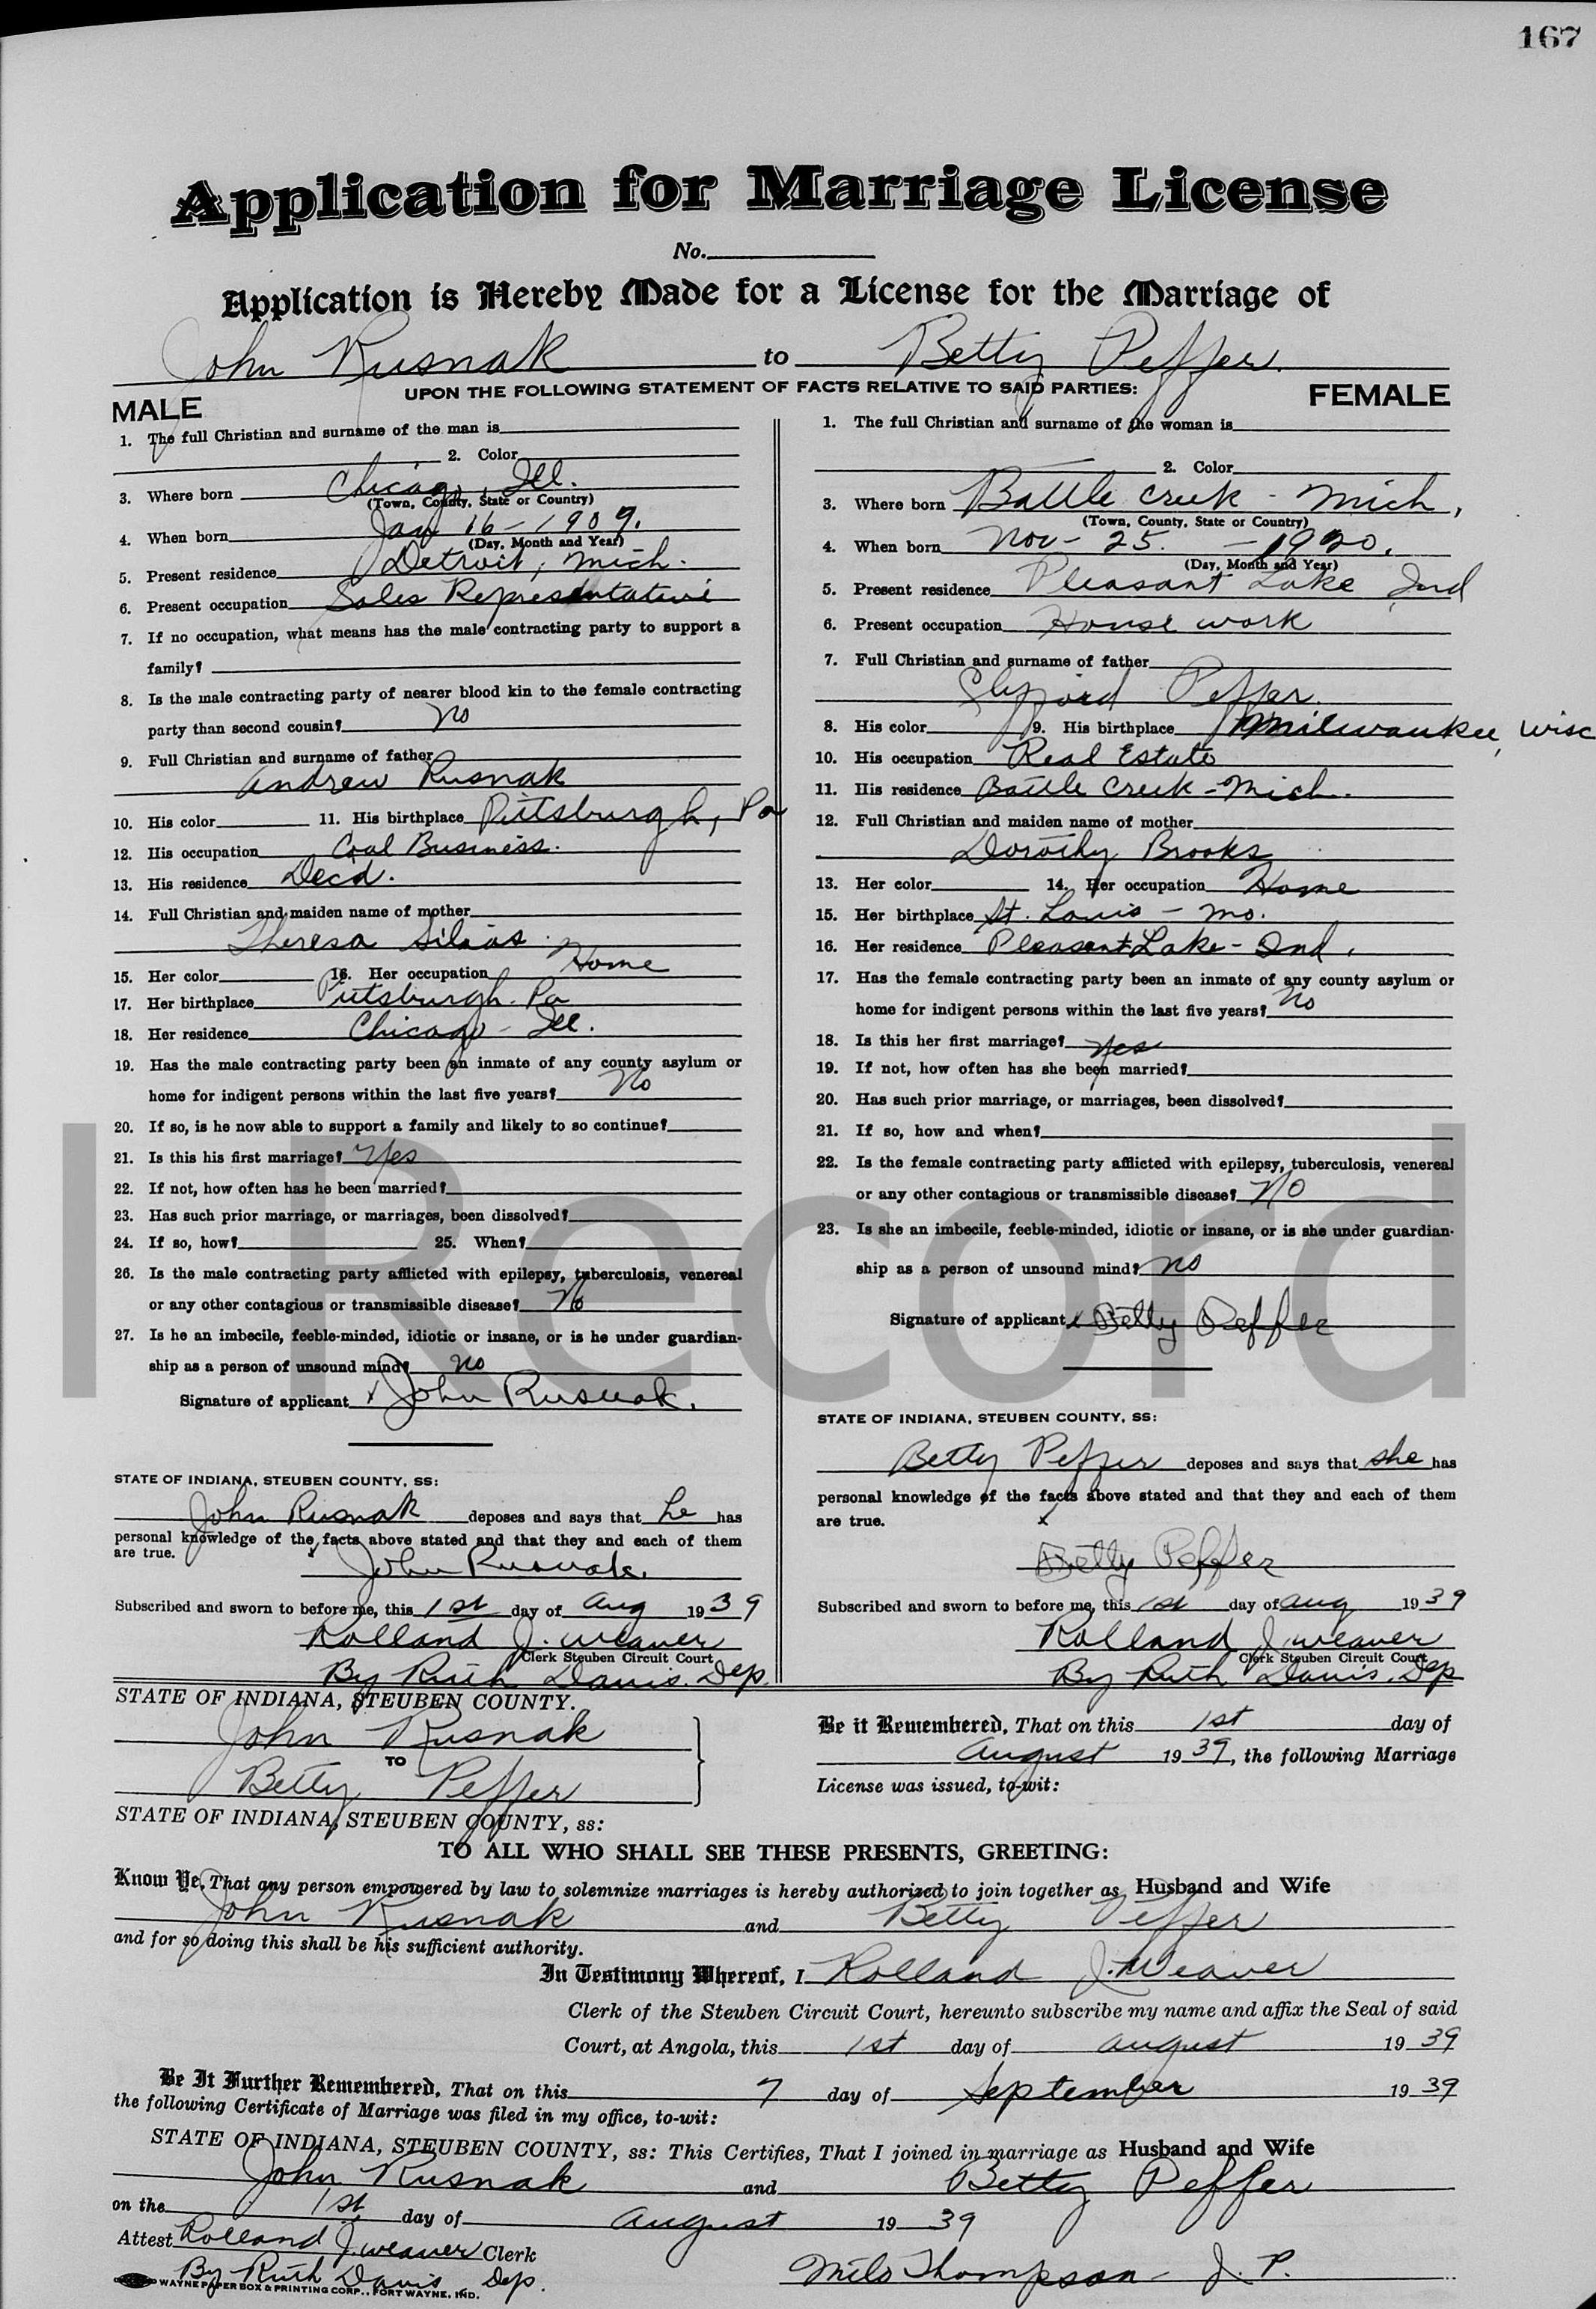 167
Application for Marriage License
No.
Application is Hereby Made for a License for the Marriage of
John Rusnak to Betty Peffer.
UPON THE FOLLOWING STATEMENT OF FACTS RELATIVE TO SAID PARTIES:
MALE
1. The full Christian and surname of the man is
2. Color
3. Where born Chicago, Ill.
(Town, County, State or Country)
4. When born Jan 16-1909.
(Day, Month and Year)
5. Present residence Detroit, Mich.
6. Present occupation Sales Representative
7. If no occupation, what means has the male contracting party to support a
family?
8. Is the male contracting party of nearer blood kin to the female contracting
party than second cousin? No
9. Full Christian and surname of father
Andrew Rusnak
10. His color 11. His birthplace Pittsburgh, Pa
12. His occupation Coal Business.
13. His residence Decd.
14. Full Christian and maiden name of mother
Theresa
15. Her color 16. Her occupation Home
17. Her birthplace Pittsburgh. Pa
18. Her residence Chicago - Ill.
19. Has the male contracting party been an inmate of any county asylum or
home for indigent persons within the last five years? No
20. If so, is he now able to support a family and likely to so continue?
21. Is this his first marriage? Yes
22. If not, how often has he been married?
23. Has such prior marriage, or marriages, been dissolved?
24. If so, how? 25. When?
26. Is the male contracting party afflicted with epilepsy, tuberculosis, venereal
or any other contagious or transmissible disease? No
27. Is he an imbecile, feeble-minded, idiotic or insane, or is he under guardian-
ship as a person of unsound mind? No
Signature of applicant x John Rusnak.
STATE OF INDIANA, STEUBEN COUNTY, SS:
John Rusnak deposes and says that he has
personal knowledge of the facts above stated and that they and each of them
are true.
x John Rusnak.
Subscribed and sworn to before me, this 1st day of Aug 1939
Rolland J. Weaver
Clerk Steuben Circuit Court
By Ruth Davis. Dep.
FEMALE
1. The full Christian and surname of the woman is
2. Color
3. Where born Battle Creek - Mich,
(Town, County, State or Country)
4. When born Nov - 25. - 1920.
(Day, Month and Year)
5. Present residence Pleasant Lake, Ind
6. Present occupation House work
7. Full Christian and surname of father
Clyfford Peffer.
8. His color 9. His birthplace Milwaukee, Wisc
10. His occupation Real Estate
11. His residence Battle Creek - Mich.
12. Full Christian and maiden name of mother
Dorothy Brooks
13. Her color 14. Her occupation Home
15. Her birthplace St. Louis - Mo.
16. Her residence Pleasant Lake - Ind.
17. Has the female contracting party been an inmate of any county asylum or
home for indigent persons within the last five years? No
18. Is this her first marriage? Yes
19. If not, how often has she been married?
20. Has such prior marriage, or marriages, been dissolved?
21. If so, how and when?
22. Is the female contracting party afflicted with epilepsy, tuberculosis, venereal
or any other contagious or transmissible disease? No
23. Is she an imbecile, feeble-minded, idiotic or insane, or is she under guardian-
ship as a person of unsound mind? No
Signature of applicant x Betty Peffer
STATE OF INDIANA, STEUBEN COUNTY, SS:
Betty Peffer deposes and says that she has
personal knowledge of the facts above stated and that they and each of them
are true.
x
Betty Peffer
Subscribed and sworn to before me, this 1st day of Aug 1939
Rolland J. Weaver
Clerk Steuben Circuit Court
By Ruth Davis. Dep
STATE OF INDIANA, STEUBEN COUNTY.
John Rusnak
TO
Betty Peffer
Be it Remembered, That on this 1st day of
August 1939, the following Marriage
License was issued, to-wit:
STATE OF INDIANA, STEUBEN COUNTY, ss:
TO ALL WHO SHALL SEE THESE PRESENTS, GREETING:
Know Ye, That any person empowered by law to solemnize marriages is hereby authorized to join together as Husband and Wife
John Rusnak and Betty Peffer
and for so doing this shall be his sufficient authority.
In Testimony Whereof, I Rolland J. Weaver
Clerk of the Steuben Circuit Court, hereunto subscribe my name and affix the Seal of said
Court, at Angola, this 1st day of August 1939
Be It Further Remembered, That on this 7 day of September 1939
the following Certificate of Marriage was filed in my office, to-wit:
STATE OF INDIANA, STEUBEN COUNTY, ss: This Certifies, That I joined in marriage as Husband and Wife
John Rusnak and Betty Peffer
on the 1st day of August 1939
Attest Rolland J. Weaver Clerk
By Ruth Davis Dep.
Milo Thompson - J. P.
WAYNE PAPER BOX & PRINTING CORP., FORT WAYNE, IND.
I Record